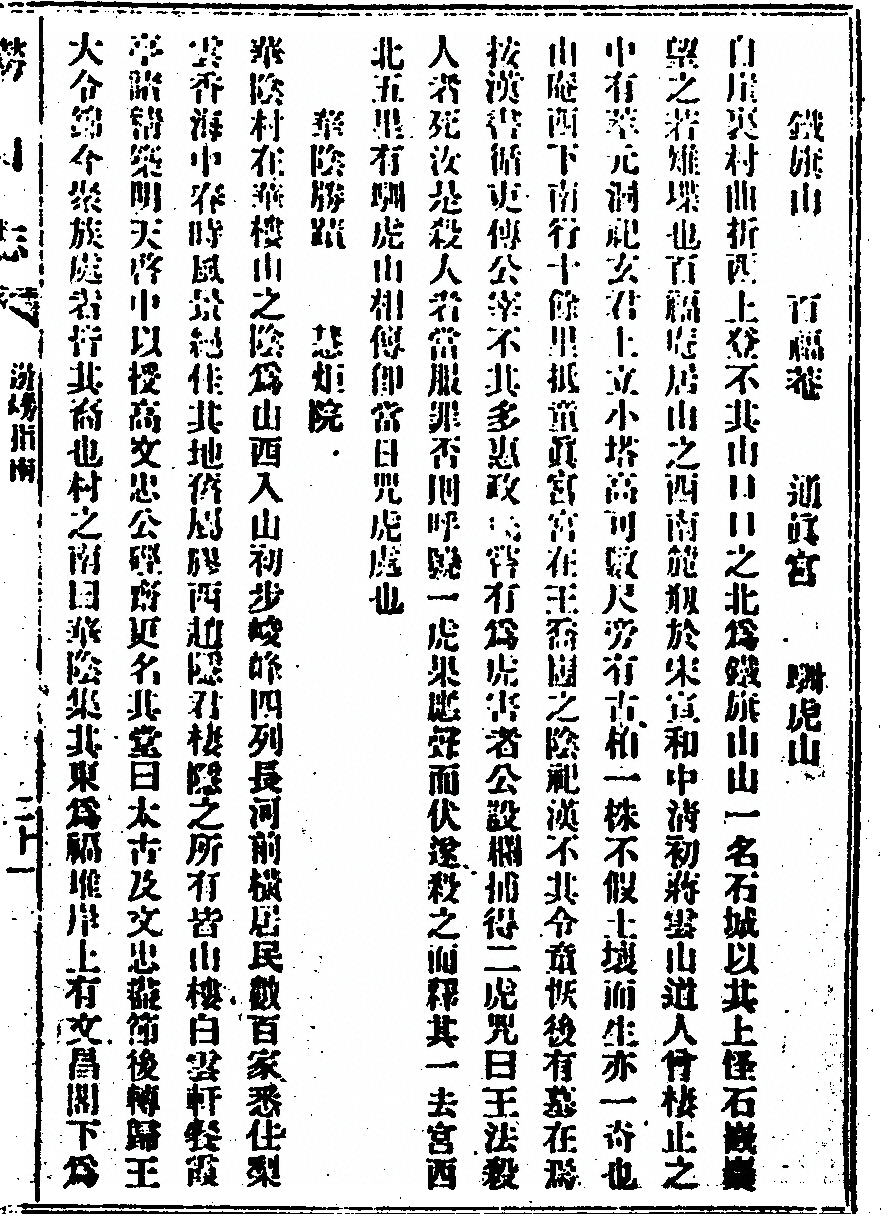 鐵旗山　百福菴　通眞宮　馴虎山
自崖裏村曲折西上登不其山口口之北爲鐵旗山山一名石城以其上怪石嵌巖
望之若雉堞也百福庵居山之西南麓剏於宋宣和中淸初蔣雲山道人曾棲止之
中有萃元洞祀玄君上立小塔高可數尺旁有古柏一株不假土壤而生亦一奇也
由庵西下南行十餘里抵童眞宮宮在王喬崮之陰祀漢不其令童恢後有墓在焉
按漢書循吏傳公宰不其多惠政民嘗有爲虎害者公設檻捕得二虎咒曰王法殺
人者死汝是殺人者當服罪否則呼號一虎果應聲而伏遂殺之而釋其一去宮西
北五里有馴虎山相傳卽當日咒虎處也
華陰勝蹟　慧炬院
華陰村在華樓山之陰爲山西入山初步峻峰四列長河前橫居民數百家悉住梨
雲香海中春時風景絕佳其地舊屬膠西趙隱君棲隱之所有皆山樓白雲軒餐霞
亭諸構築明天啓中以授高文忠公磴齋更名其堂曰太古及文忠盡節後轉歸王
大令錦今聚族處者皆其裔也村之南曰華陰集其東爲福堆岸上有文昌閣下爲
勞山志
游嶗指南
二十一